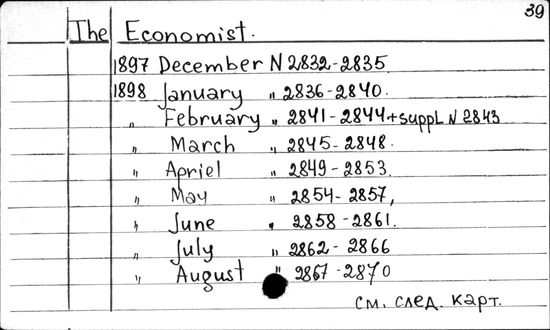 39
The Economist.
1897 December N 2832-2835
1898 January " 2836-2840.
" February " 2841-2844+suppl. N 2843
" March " 2845-2848.
" Apriel " 2849-2853.
" May " 2854-2857,
" June " 2858-2861.
" July " 2862-2866
" August " 2867-2870
см. след. карт.